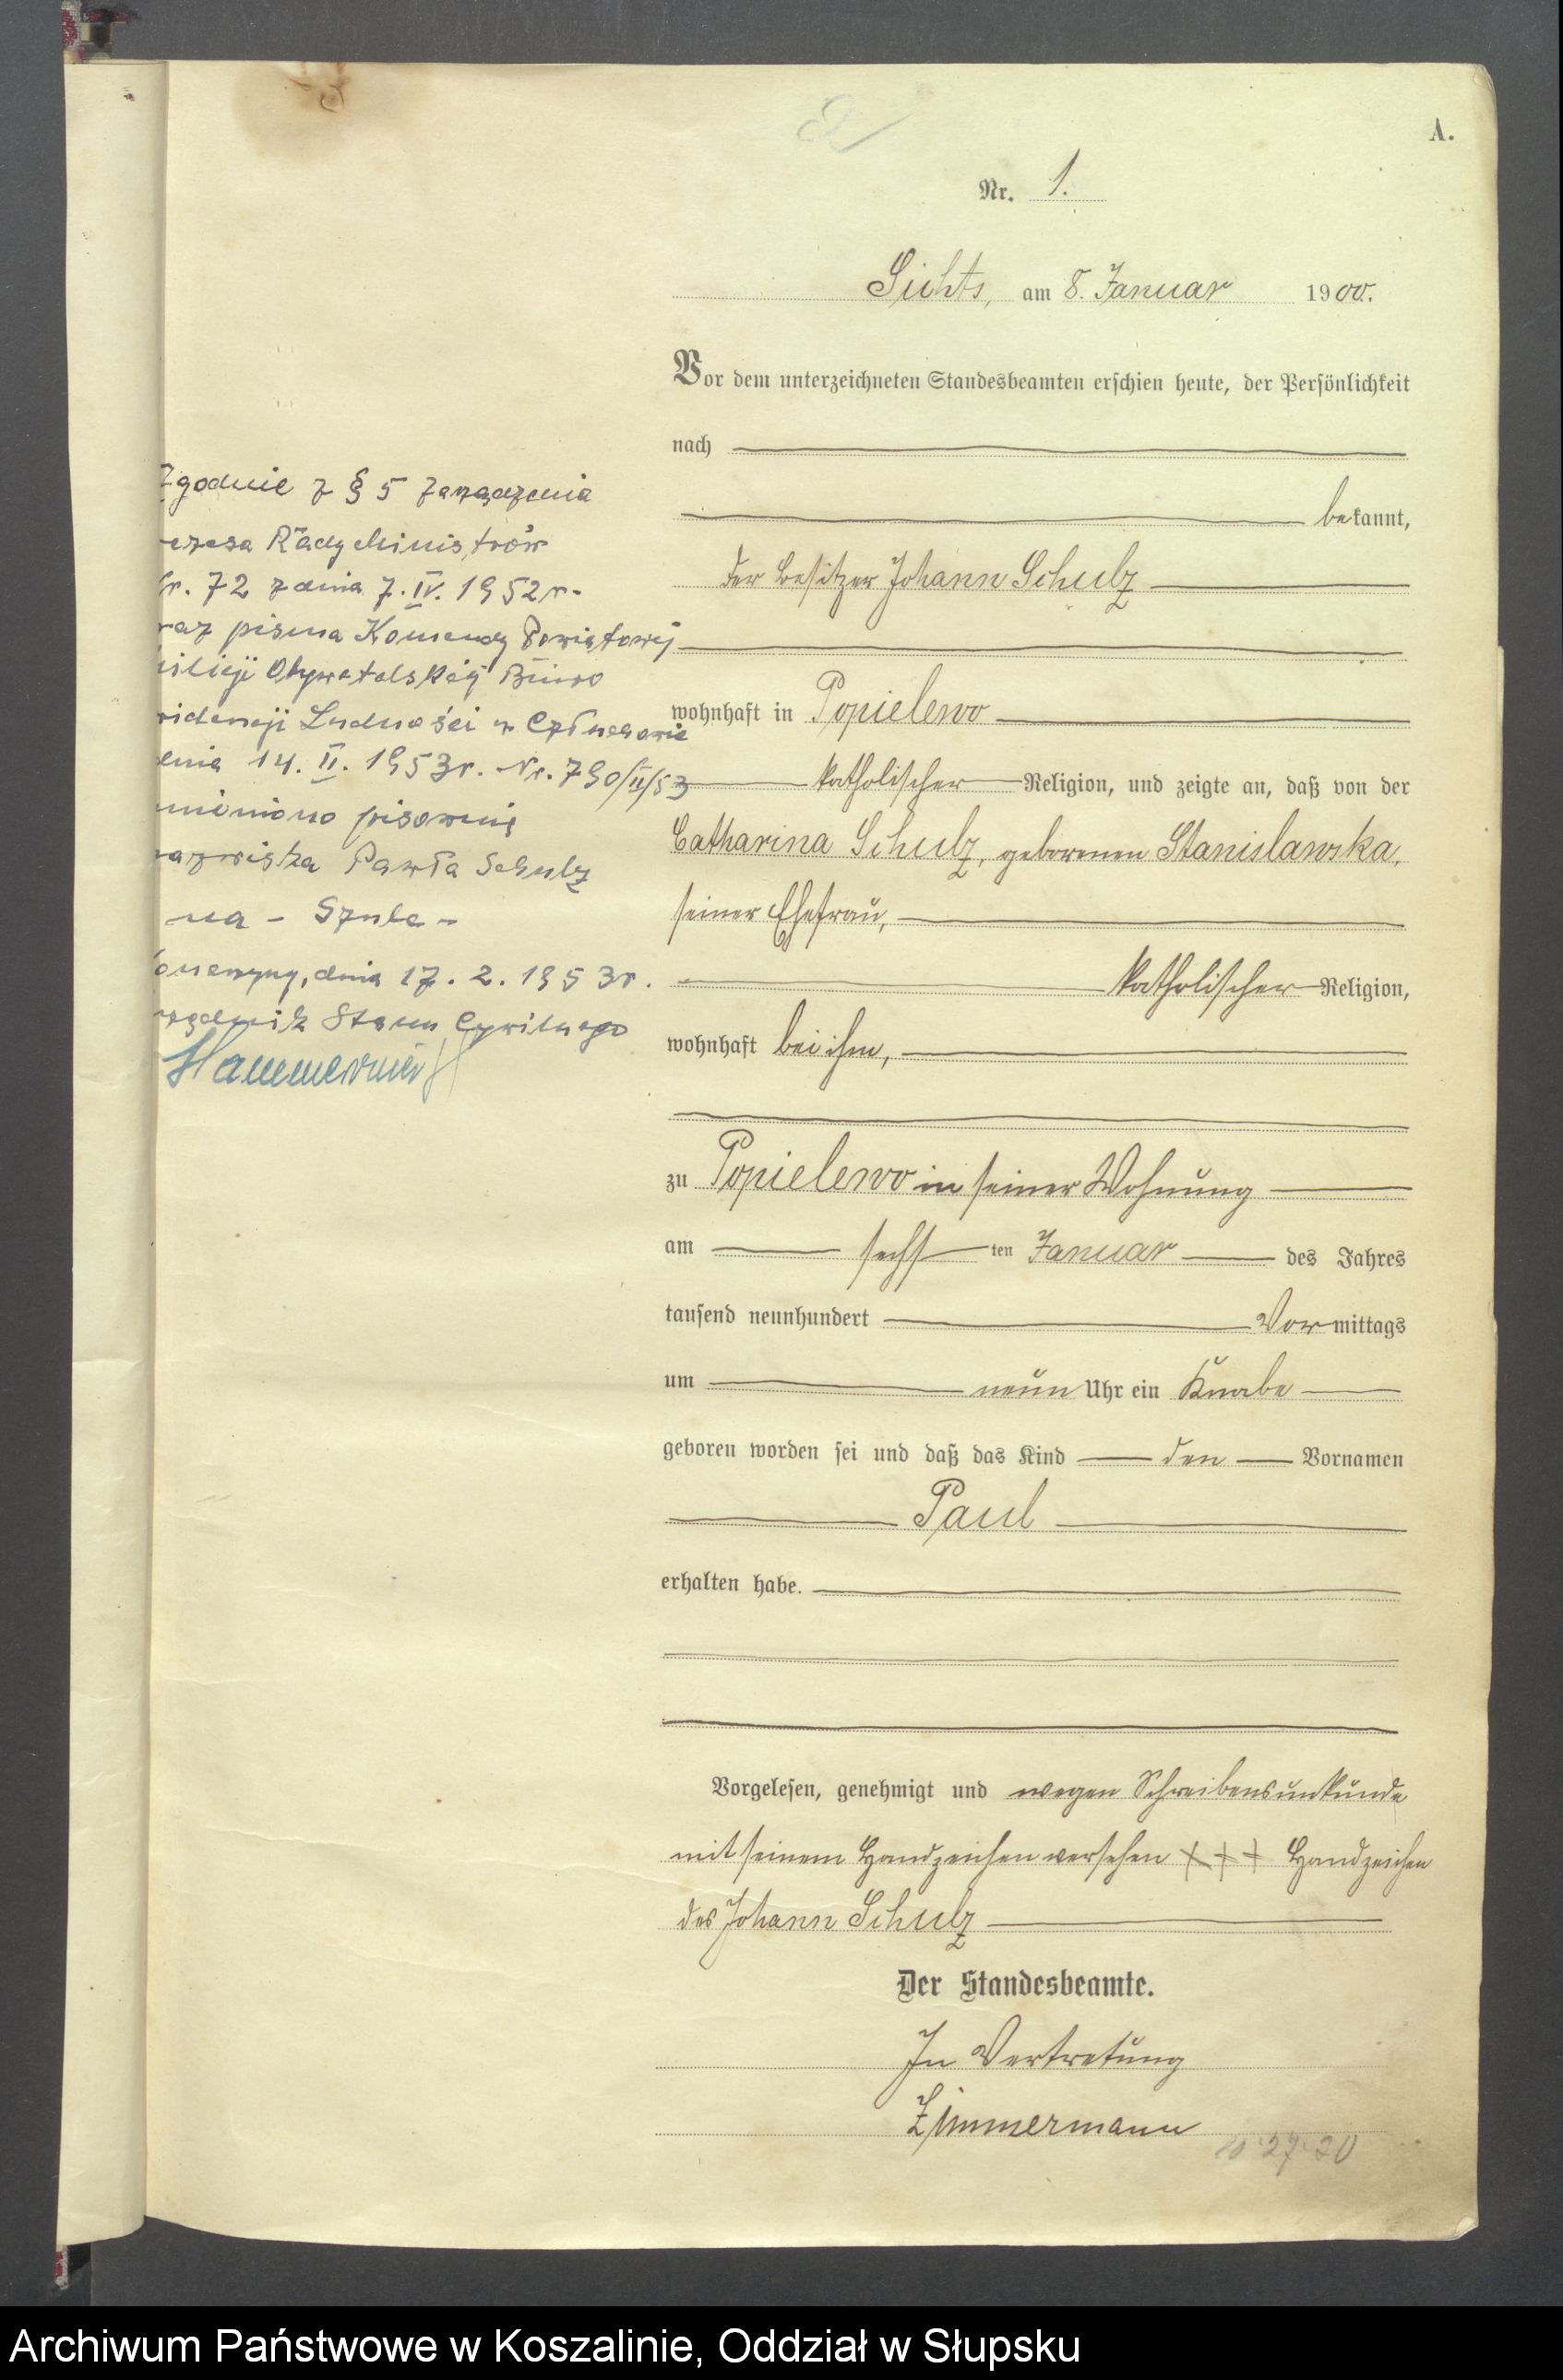 A.
2
Nr. 1.
Sichts, am 8. Januar 1900.
Vor dem unterzeichneten Standesbeamten erschien heute, der Persönlichkeit
nach
bekannt,
der Besitzer Johann Schulz
wohnhaft in Popielewo
katholischer Religion, und zeigte an, daß von der
Catharina Schulz, geborenen Stanislawska,
seiner Ehefrau,
katholischer Religion,
wohnhaft bei ihm,
zu Popielewo in seiner Wohnung
am sechsten Januar des Jahres
tausend neunhundert Vormittags
um neun Uhr ein Knabe
geboren worden sei und daß das Kind den Vornamen
Paul
erhalten habe.
Vorgelesen, genehmigt und wegen Schreibensunkunde
mit seinem Handzeichen versehen + + + Handzeichen
des Johann Schulz
Der Standesbeamte.
In Vertretung
Zimmermann
27 20
Zgodnie z § 5 Zarządzenia
ezesa Rady Ministrów
r. 72 z dnia 7. IV. 1952 r.
raz pisma Komendy Powiatowej
ilicji Obywatelskiej Biuro
widencji Ludności w Człuchowie
dnia 14. II. 1953 r. Nr. 790/II/53
mieniono pisownię
azwiska Pawła Schulz
na - Szulc -
dnia 17. 2. 1953 r.
rzędnik Stanu Cywilnego
Archiwum Państwowe w Koszalinie, Oddział w Słupsku